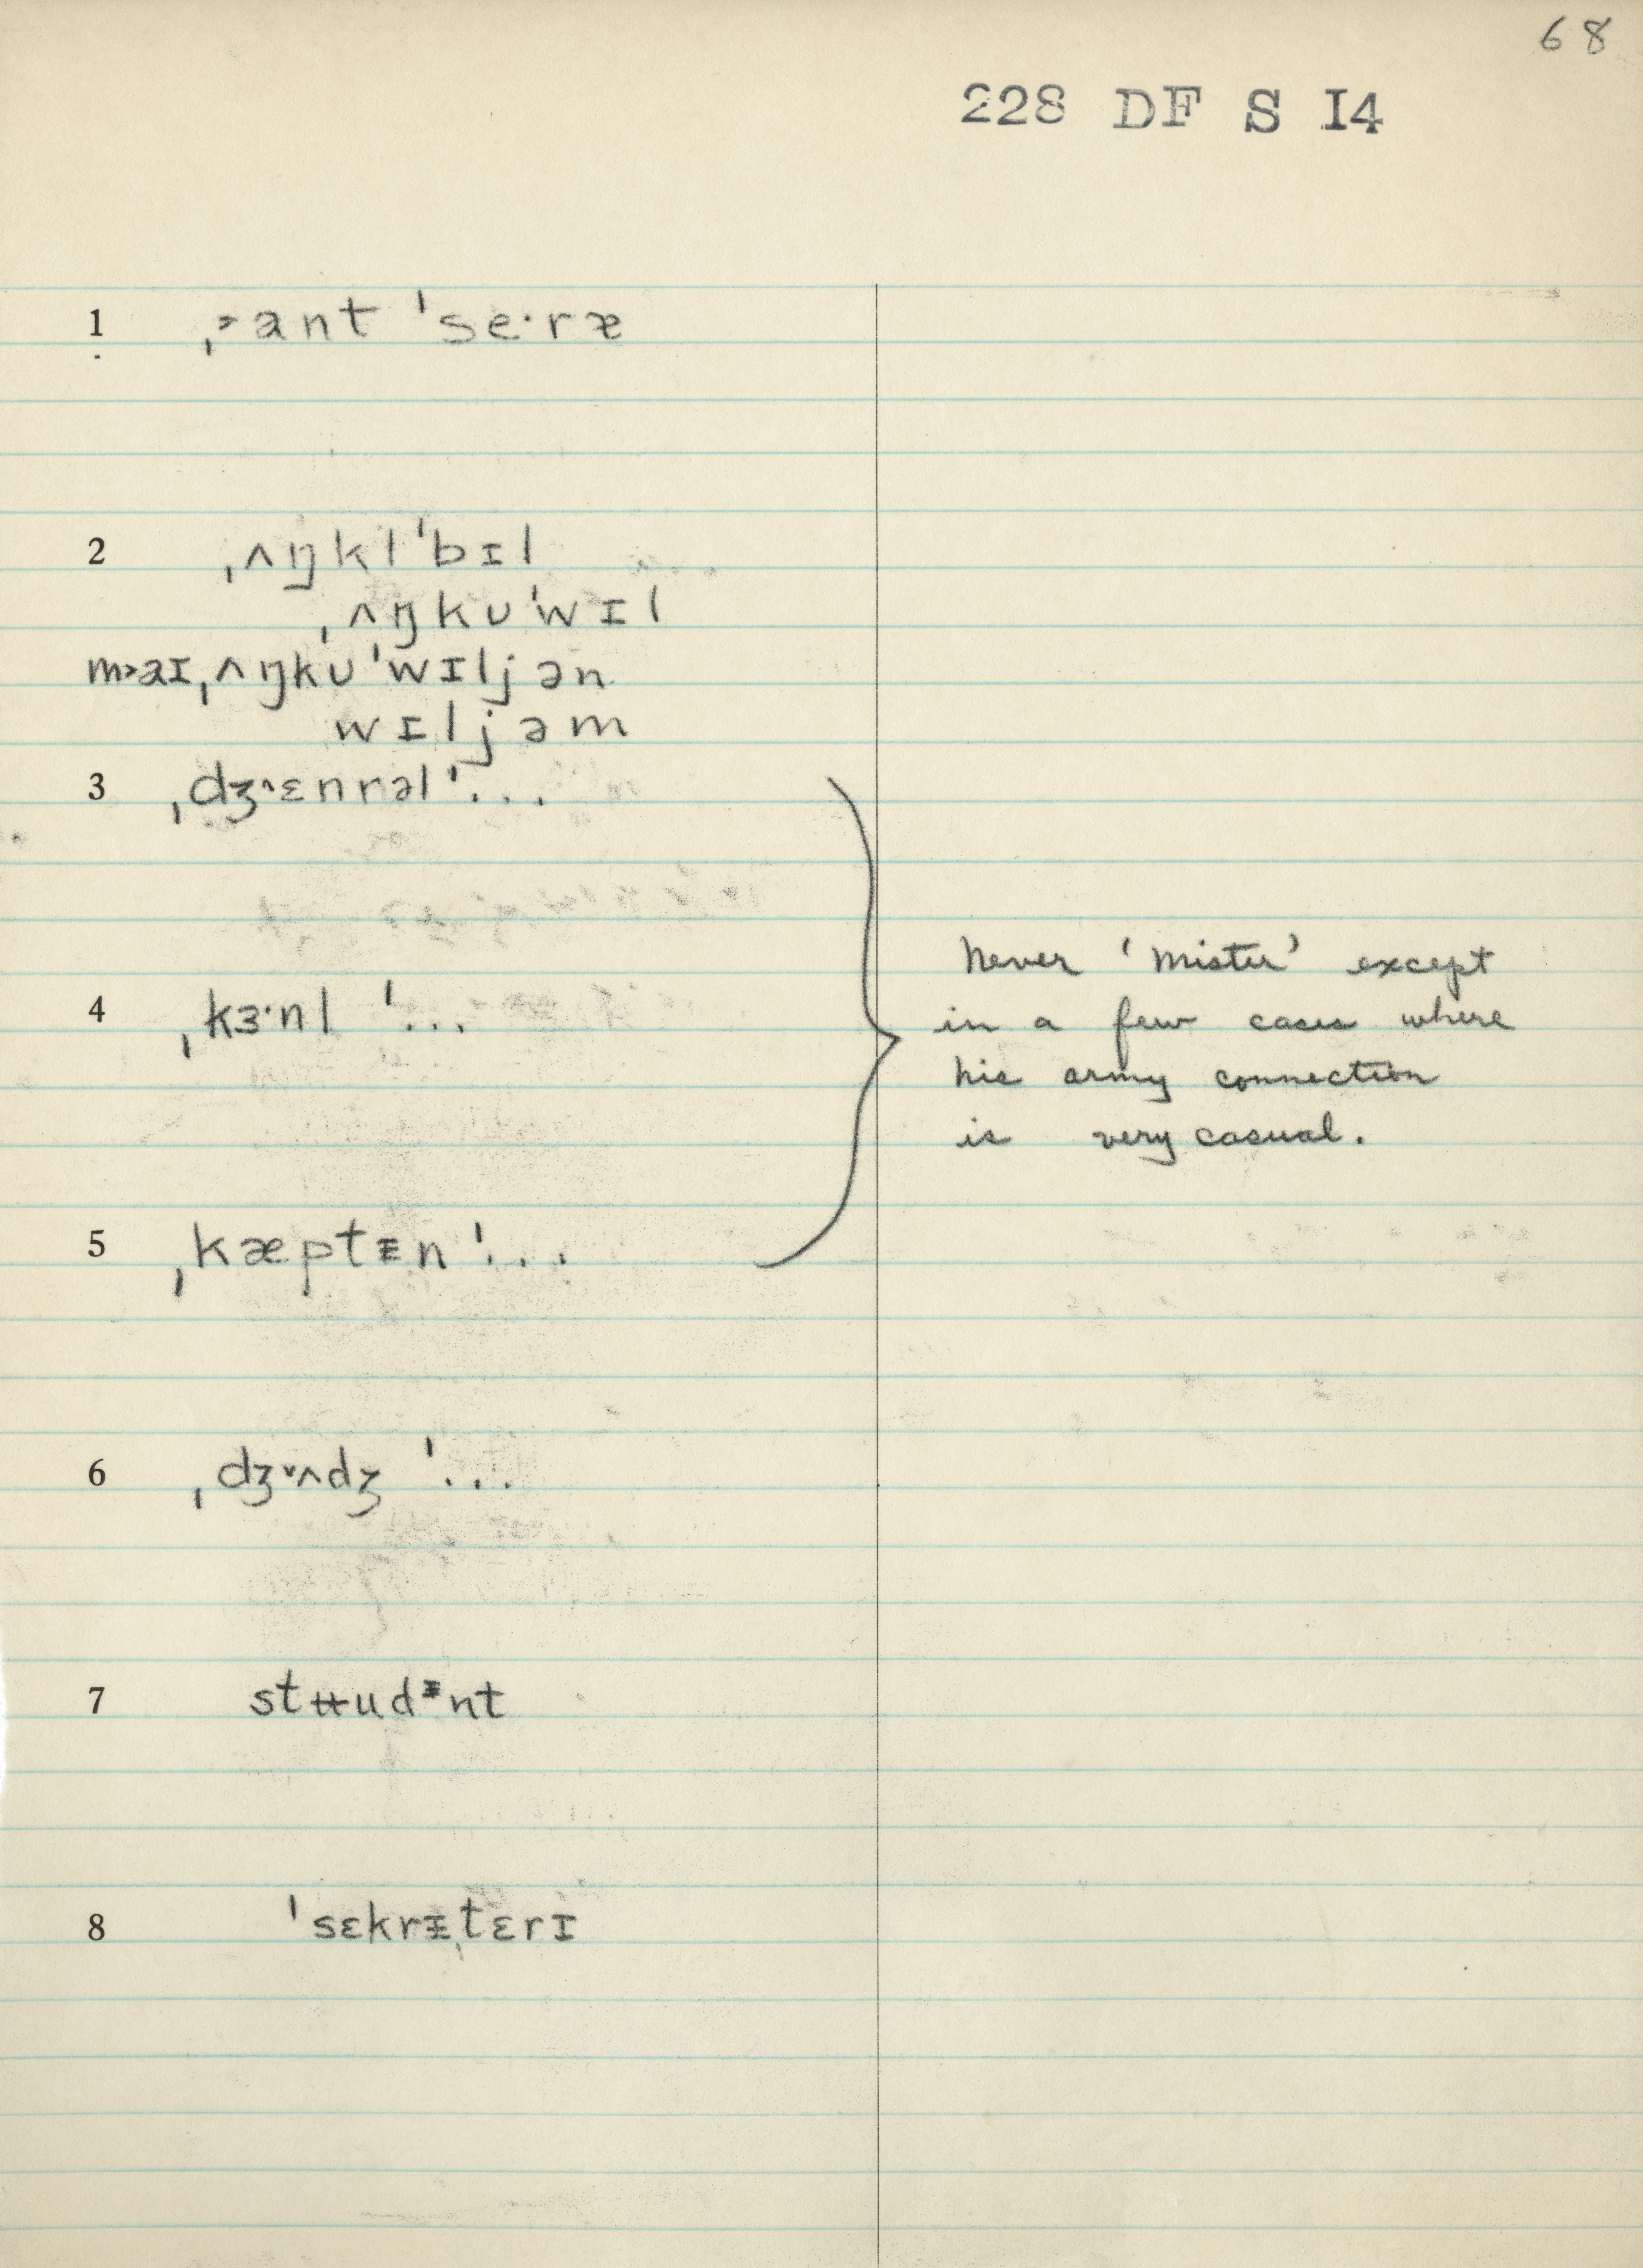 68
228 DF S I4
1 ˌ˃ant ˈse·ræ
2 ˌʌŋklˈbɪl
ˌʌŋkʊˈwɪl
m˃aɪˌʌŋkʊˈwɪljən
wɪljəm
3 ˌdʒ˄ɛnrəlˈ...
Never 'Mister' except
in a few cases where
his army connection
is very casual.
4 ˌkɜ·nl ˈ...
5 ˌkæptᵻn ˈ...
6 ˌdʒ˅ʌdʒ ˈ...
7 stʉudᵻnt
8 ˈsɛkrᵻˌtɛrɪ